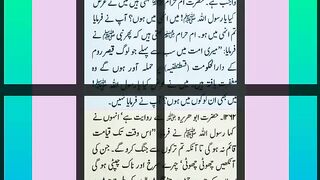 واجب ہے۔ حضرت ام حرام
کیا یا رسول اللہ ﷺ! میں انھی میں ہوں؟ آپ نے فرمایا
تم انھی میں ہو۔ ام حرام کہتی ہیں کہ پھر نبی ﷺ نے
فرمایا: "میری امت میں سب سے پہلے جو لوگ قیصر روم
کے دارالحکومت (قسطنطنیہ) پر حملہ آور ہوں گے وہ
یا رسول اللہ ﷺ
میں بھی ان لوگوں میں ہوں؟ آپ نے فرمایا نہیں۔
۱۲۶۲۔ حضرت ابو ہریرہ سے روایت ہے انھوں نے
کہا رسول اللہ ﷺ نے فرمایا: "اس وقت تک قیامت
قائم نہ ہوگی تا آنکہ تم ترکوں سے جنگ کرو گے۔ جن کی
آنکھیں چھوٹی چھوٹی، چہرے سرخ اور ناک چپٹی ہو گی